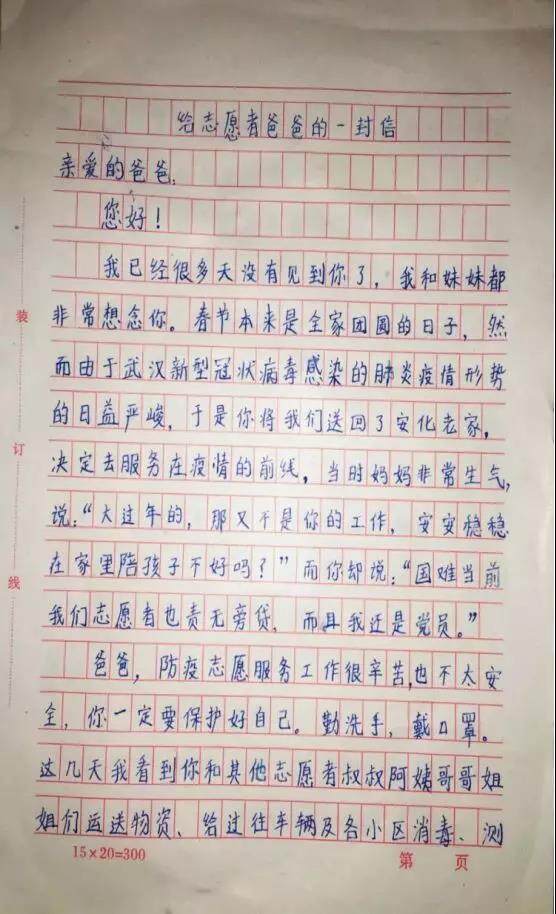 给志愿者爸爸的一封信
亲爱的爸爸:
您好!
我已经很多天没有见到你了,我和妹妹都
非常想念你。春节本来是全家团圆的日子,然
而由于武汉新型冠状病毒感染的肺炎疫情形势
的日益严峻,于是你将我们送回了安化老家,
决定去服务在疫情的前线,当时妈妈非常生气,
说:“大过年的,那又不是你的工作,安安稳稳
在家里陪孩子不好吗?”而你却说:“国难当前
我们志愿者也责无旁贷,而且我还是党员。”
爸爸,防疫志愿服务工作很辛苦,也不太安
全,你一定要保护好自己。勤洗手,戴口罩。
这几天我看到你和其他志愿者叔叔阿姨哥哥姐
姐们运送物资、给过往车辆及各小区消毒、测
装
订
线
15×20=300
第 页